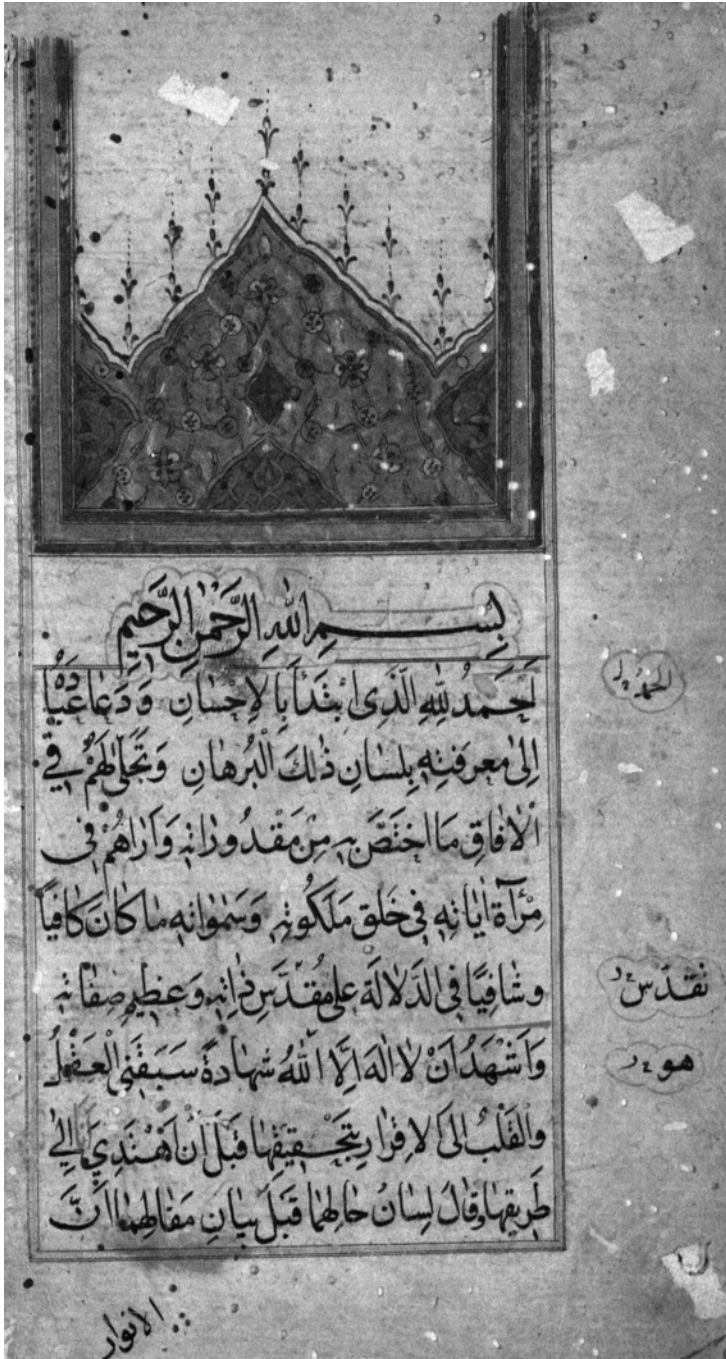 بِسْمِ اللهِ الرَّحْمٰنِ الرَّحِيمِ
اَلْحَمْدُ لِلّٰهِ الَّذِى ابْتَدَأَ بِالْاِحْسَانِ وَدَعَا عَبْدَهُ
اِلٰى مَعْرِفَتِهِ بِلِسَانِ ذٰلِكَ الْبُرْهَانِ وَتَجَلّٰى لَهُمْ فِي
الْاٰفَاقِ مَا اخْتَصَّ بِهِ مِنْ مَقْدُورَاتِهِ وَاَرَاهُمْ فِى
مِرْآةِ اٰيَاتِهِ فِى خَلْقِ مَلَكُوتِهِ وَسَمٰوَاتِهِ مَا كَانَ كَافِيًا
وَشَافِيًا فِى الدَّلَالَةِ عَلٰى مُقَدَّسِ ذَاتِهِ وَعَظِيمِ صِفَاتِهِ
وَاَشْهَدُ اَنْ لَا اِلٰهَ اِلَّا اللّٰهُ شَهَادَةً سَبَقَنِى الْعَقْلُ
وَالْقَلْبُ اِلَى الْاِقْرَارِ بِتَحْقِيقِهَا قَبْلَ اَنْ اَهْتَدِيَ اِلٰى
طَرِيقِهَا وَقَالَ لِسَانُ حَالِهِمَا قَبْلَ بَيَانِ مَقَالِهِمَا اَنَّ
الحمد
تقدّس
هو
الانوار